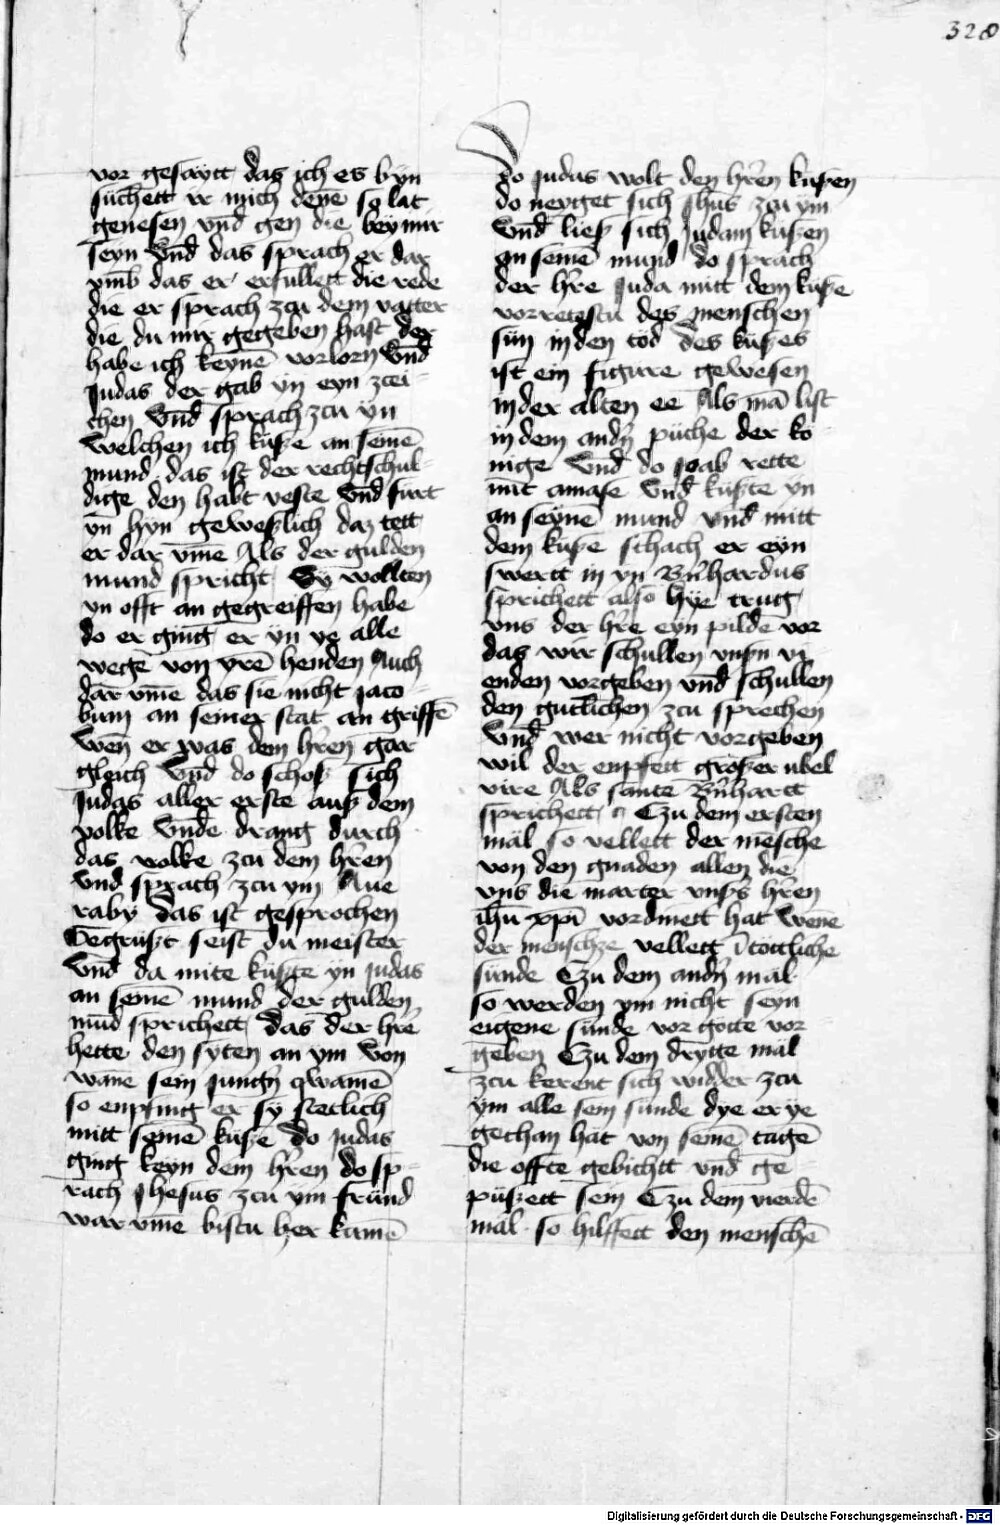 328
vor gesaytt das ich es byn
süchett ir mich denē so lat
genesen vnd gen die bey mir
seyn Vnd das sprach er dar
vmb das er erfullett die rede
die er sprach zcu dem vatter
die du mir gegeben hast der
habe ich keynē vorlorn Vnd
Judas der gab yn eyn zcei-
chen Vnd sprach zcu yn
Welchen ich küsze an semē
mund das ist der rechtschul-
dige den habt veste Vnd furt
yn hyn geweszlich daz tett
er dar vme Als der gulden
mund spricht Sy wollten
yn offt an gegreiffen habe
do er ging er yn ye alle
wege von yrē henden Auch
dar vme das sie nicht jaco-
bum an seiner stat an griffē
Wen er was dem hren gar
gleich Vnd do schosz sich
Judas aller erste ausz dem
volke Vnde drang durch
das volke zcu dem hren
Vnd sprach zcu ym Aue
raby das ist gesprochen
Gegruszt seist du meister
Vnd da mite küszte yn judas
an semē mund der gulden
mūd sprichett das der hre
hette den syten an ym Von
wāne sein jungn qwamē
so enpfing er sy stetlich
mitt semē kusze do judas
ging keyn dem hren do sp-
rach jhesus zcu ym frund
war vme bistu her kamē
Do judas wolt den hren kuszen
do neyget sich jhus zcu ym
Vnd liesz sich Judam kuszen
an semē mund do sprach
der hre Juda mitt dem kusze
vorretestu des menschen
sün in den tod des kuszes
ist ein figure gewesen
in der alten ee Als mā list
in dem andn püche der ko-
nige Vnd do joab rette
mit amase Vnd küszte yn
an seynē mund vnd mitt
dem kusze schach er eyn
swertt in yn Bnhardus
sprichett also hye trug
vns der hre eyn pildē vor
das wir schullen vnsn vi-
enden vorgeben vnd schullen
den gutlichen zcu sprechen
Vnd wer nicht vorgeben
wil der enpfett groszer vbel
vire Als sante Bnhartt
sprichett Czu dem ersten
mäl so vellett der mēsche
von den gnaden allen die
vns die marter vnszs hren
ihu xpi vordinett hat Wene
der menschze vellett ī tottliche
sünde Czu dem andn mal
so werden ym nicht seyn
eigene sünde vor gotte vor
geben Czu dem drytte mäl
zcu kerent sich widder zcu
ym alle sein sunde dye er ye
gethan hät von semē tagē
die offte gebichtt vnd ge-
püszett sein Czu dem vierdē
mäl so hilffett den menschē
Digitalisierung gefördert durch die Deutsche Forschungsgemeinschaft - DFG